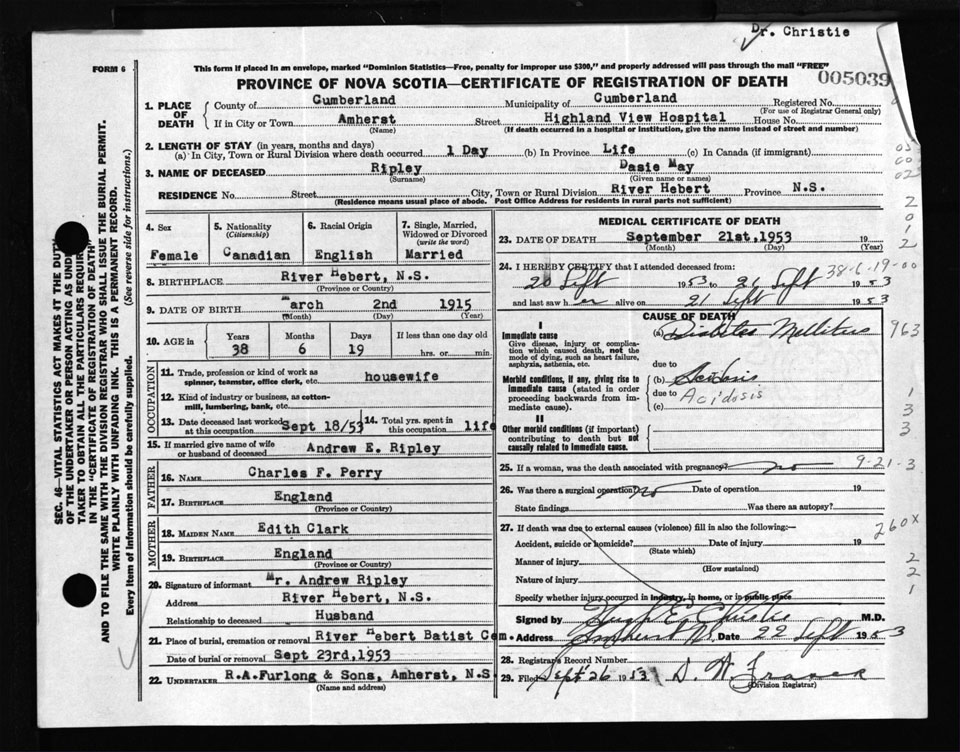 Dr. Christie
FORM 6
This form if placed in an envelope, marked "Dominion Statistics—Free, penalty for improper use $300," and properly addressed will pass through the mail "FREE"
PROVINCE OF NOVA SCOTIA—CERTIFICATE OF REGISTRATION OF DEATH
005039
1. PLACE OF DEATH
County of Cumberland Municipality of Cumberland Registered No.
(For use of Registrar General only)
If in City or Town Amherst Street Highland View Hospital House No.
(Name) (If death occurred in a hospital or institution, give the name instead of street and number)
2. LENGTH OF STAY (in years, months and days)
(a) In City, Town or Rural Division where death occurred 1 Day (b) In Province Life (c) In Canada (if immigrant)
3. NAME OF DECEASED Ripley Dasie May
(Surname) (Given name or names)
RESIDENCE No. Street City, Town or Rural Division River Hebert Province N.S.
(Residence means usual place of abode. Post Office Address for residents in rural parts not sufficient)
SEC. 46—VITAL STATISTICS ACT MAKES IT THE DUTY
OF THE UNDERTAKER OR PERSON ACTING AS UNDER
TAKER TO OBTAIN ALL THE PARTICULARS REQUIR
IN THE "CERTIFICATE OF REGISTRATION OF DEATH"
AND TO FILE THE SAME WITH THE DIVISION REGISTRAR WHO SHALL ISSUE THE BURIAL PERMIT.
WRITE PLAINLY WITH UNFADING INK. THIS IS A PERMANENT RECORD.
Every item of information should be carefully supplied. (See reverse side for instructions.)
4. Sex
Female
5. Nationality
(Citizenship)
Canadian
6. Racial Origin
English
7. Single, Married, Widowed or Divorced
(write the word)
Married
8. BIRTHPLACE River Hebert, N.S.
(Province or Country)
9. DATE OF BIRTH March 2nd 1915
(Month) (Day) (Year)
10. AGE in
Years 38
Months 6
Days 19
If less than one day old
hrs. or min.
OCCUPATION
11. Trade, profession or kind of work as
spinner, teamster, office clerk, etc. housewife
12. Kind of industry or business, as cotton-
mill, lumbering, bank, etc.
13. Date deceased last worked at this occupation Sept 18/53
14. Total yrs. spent in this occupation life
15. If married give name of wife or husband of deceased Andrew E. Ripley
FATHER
16. NAME Charles F. Perry
17. BIRTHPLACE England
(Province or Country)
MOTHER
18. MAIDEN NAME Edith Clark
19. BIRTHPLACE England
(Province or Country)
20. Signature of informant Mr. Andrew Ripley
Address River Hebert, N.S.
Relationship to deceased Husband
21. Place of burial, cremation or removal River Hebert Batist Cem.
Date of burial or removal Sept 23rd, 1953
22. UNDERTAKER R.A.Furlong & Sons, Amherst, N.S.
(Name and address)
MEDICAL CERTIFICATE OF DEATH
23. DATE OF DEATH September 21st, 1953 19
(Month) (Day) (Year)
24. I HEREBY CERTIFY that I attended deceased from:
38-6-19-00
20 Sept 1953 to 21 Sept 1953
and last saw her alive on 21 Sept 1953
CAUSE OF DEATH
I
Immediate cause
Give disease, injury or complica-
tion which caused death, not the
mode of dying, such as heart failure,
asphyxia, asthenia, etc.
(a) Diabetes Mellitus
963
due to
Morbid conditions, if any, giving rise to
immediate cause (stated in order
proceeding backwards from im-
mediate cause).
(b) Acidosis
due to Acidosis
(c)
II
Other morbid conditions (if important)
contributing to death but not
causally related to immediate cause.
25. If a woman, was the death associated with pregnancy? no
9-21-3
26. Was there a surgical operation? no Date of operation 19
State findings Was there an autopsy?
27. If death was due to external causes (violence) fill in also the following:—
260X
Accident, suicide or homicide? Date of injury 19
(State which)
Manner of injury
(How sustained)
Nature of injury
Specify whether injury occurred in industry, in home, or in public place
Signed by Hugh E. Christie M.D.
Address Amherst N.S. Date 22 Sept 1953
28. Registrar's Record Number
29. Filed Sept 26 1953 D. W.
(Division Registrar)